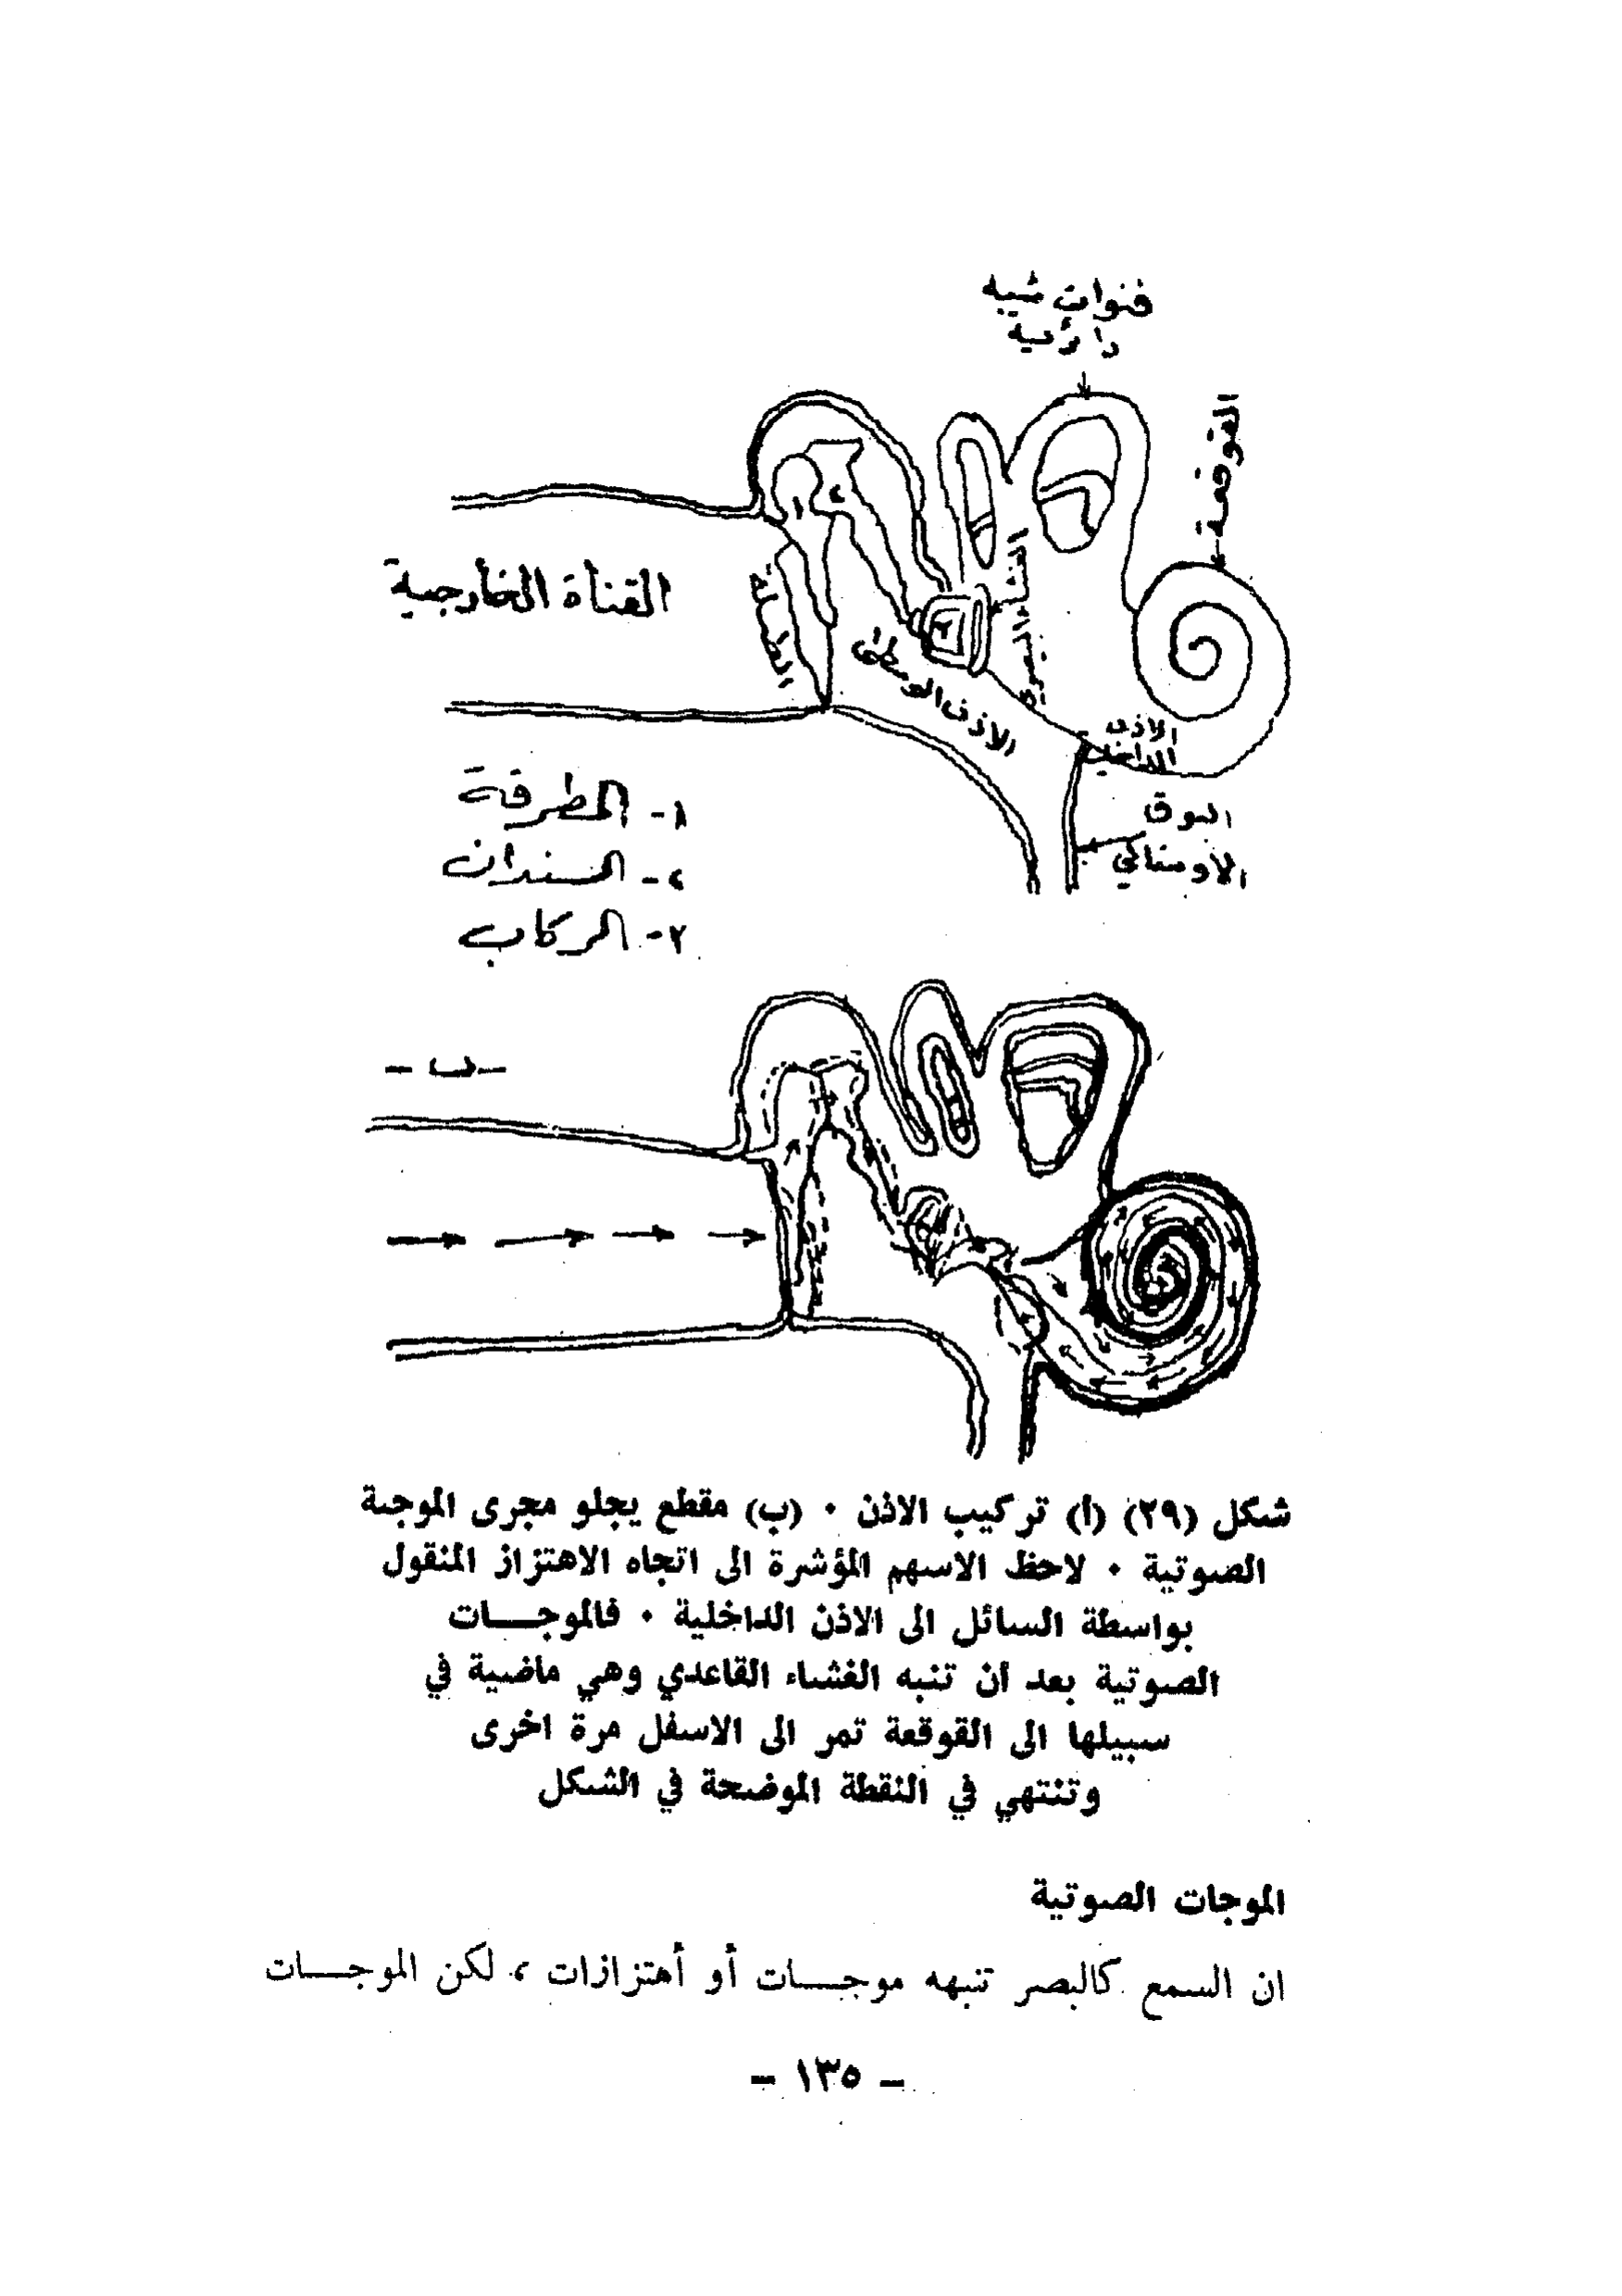 قنوات شبه
دائرية
القوقعة
القناة الخارجية
الطبلة
الاذن الوسطى
الغشاء
الاذن
الداخلية
البوق
الاوستاكي
١- المطرقة
٢- السندان
٣- الركاب
- ب -
شكل (٢٩) (أ) تركيب الاذن ٠ (ب) مقطع يجلو مجرى الموجة
الصوتية ٠ لاحظ الاسهم المؤشرة الى اتجاه الاهتزاز المنقول
بواسطة السائل الى الاذن الداخلية ٠ فالموجــات
الصوتية بعد أن تنبه الغشاء القاعدي وهي ماضية في
سبيلها الى القوقعة تمر الى الاسفل مرة اخرى
وتنتهي في النقطة الموضحة في الشكل
الموجات الصوتية
ان السمع كالبصر تنبهه موجــات أو أهتزازات ، لكن الموجــات
- ١٣٥ -